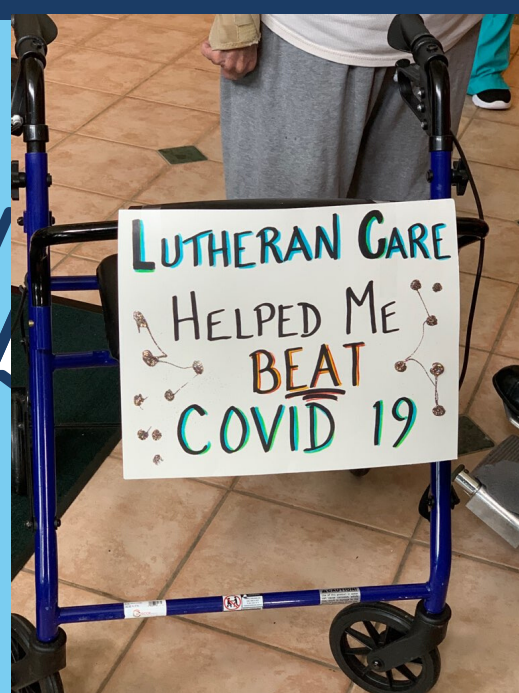 LUTHERAN CARE
HELPED ME
BEAT
COVID 19
CAUTION!